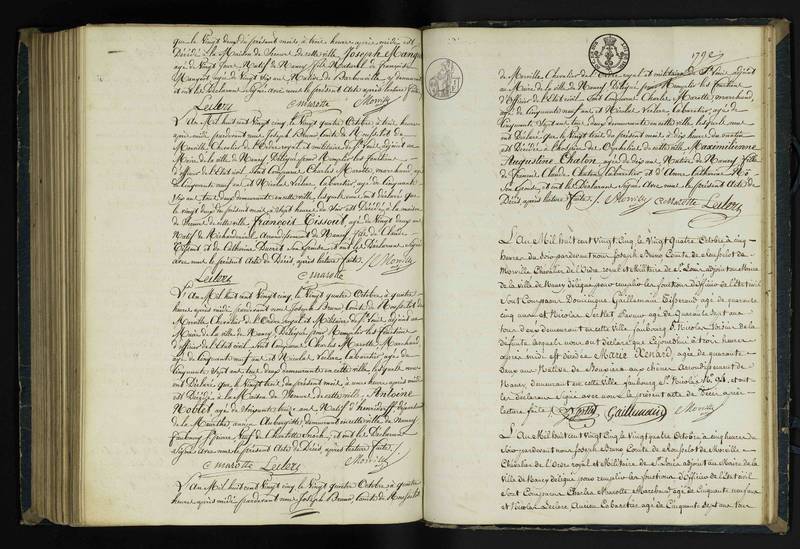 que le vingt deux du présent mois à trois heures après midi est
Décédé à la Maison de Secours de cette ville, Joseph Mangin
agé de vingt Jours Natif de Nancy fils Naturel de françoise
Mangin agée de vingt Six ans Native de
et ont les Déclarans Signé avec nous le présent Acte après lecture faite
Leclerc Marotte Morville
L'An Mil huit cent vingt cinq, le vingt quatre Octobre, à trois heures
après midi pardevant nous Joseph Bruno Comte de
Morville Chevalier de l'Ordre royal et militaire de St Louis, adjoint au
Maire de la ville de Nancy Délégué pour remplir les fonctions
d'Officier de l'Etat civil Sont Comparus Charles Marotte, marchand, agé
de Cinquante neuf ans et Nicolas Leclerc Cabaretier, agé de Cinquante
Sept ans, tous deux demeurants en cette ville, lesquels nous ont déclaré que
le vingt deux du présent mois, à Sept heures du Soir est Décédé à la maison
de Secours de cette ville françois Tissout, agé de vingt deux ans
Natif de arrondissement de Nancy fils de Claude
et de Catherine Ducret Son Epouse, et ont les Déclarans Signé
avec nous le présent Acte de Décès, après lecture faite. Morville
Leclerc Marotte
L'An Mil huit cent vingt cinq, le vingt quatre Octobre, à quatre
heures après midi pardevant nous Joseph Bruno Comte de
Morville, Chevalier de l'Ordre royal et Militaire de St Louis, adjoint au
Maire de la ville de Nancy, Délégué pour remplir les fonctions
d'Officier de l'Etat civil Sont Comparus Charles Marotte Marchand
agé de Cinquante neuf ans, et Nicolas Leclerc, Cabaretier agé de
Cinquante Sept ans, tous deux demeurants en cette ville, lesquels nous
ont Déclaré que le vingt trois du présent mois, à une heure après midi
est Décédé à la Maison de Secours, de cette ville, Antoine
Noblet agé de ans Natif d' Département
de la Meurthe, ancien Aubergiste, demeurant en cette ville de Nancy
faubourg St Pierre, Veuf de et ont les Déclarans
Signé avec nous le présent Acte de Décès après lecture faite.
Marotte Leclerc Morville
L'An Mil huit cent vingt cinq, le vingt quatre Octobre, à quatre
heures après midi pardevant nous Joseph Bruno, Comte de
1792
de Morville Chevalier de l'Ordre royal et militaire de St Louis, adjoint
au Maire de la ville de Nancy Délégué, pour Remplir les fonctions
d'Officier de l'Etat civil Sont Comparus Charles Marotte, marchand,
agé de Cinquante neuf ans, et Nicolas Leclerc Cabaretier, agé de
Cinquante Sept ans, tous deux demeurants en cette ville, lesquels nous
ont Déclaré que le vingt trois du présent mois à dix heures du matin
est Décédée à l'hospice des Orphelins de cette ville Maximilienne
Augustine Chalon agée de dix ans Native de Nancy, fille
de françois Claude Chalon Cabaretier et de Anne Catherine
Son Epouse, et ont les Déclarans Signé Avec nous le présent Acte de
Décès après lecture faite. Morville Marotte Leclerc
L'An Mil huit cent Vingt Cinq le Vingt Quatre Octobre à cinq
heures du Soir pardevant nous Joseph Bruno Comte de
Morville Chevalier de l'Ordre royal et Militaire de St Louis, adjoint au Maire
de la Ville de Nancy délégué pour remplir les fonctions d'Officier de l'Etat civil
Sont Comparus Dominique Gaillemin Tisserand agé de quarante
cinq ans et Nicolas agé de quarante Sept ans
tous deux demeurant en cette Ville faubourg St Nicolas Voisins de la
défunte lesquels nous ont déclaré que Ce jourd'hui à trois heures
après midi est décédée Marie Xenard agée de quarante
deux ans Native de arrondissement de
Nancy demeurant en cette Ville faubourg St Nicolas et ont
les Déclarans Signé avec nous le présent acte de Décès après
lecture faite. Gaillemin Morville
L'An Mil huit cent Vingt Cinq le Vingt quatre Octobre à cinq heures du
Soir pardevant nous Joseph Bruno Comte de Morville
Chevalier de l'Ordre royal et Militaire de St Louis adjoint au Maire de la
Ville de Nancy délégué pour remplir les fonctions d'Officier de l'Etat civil
Sont Comparus Charles Marotte Marchand agé de Cinquante neuf ans
et Nicolas Leclerc Ancien Cabaretier agé de Cinquante Sept ans tous